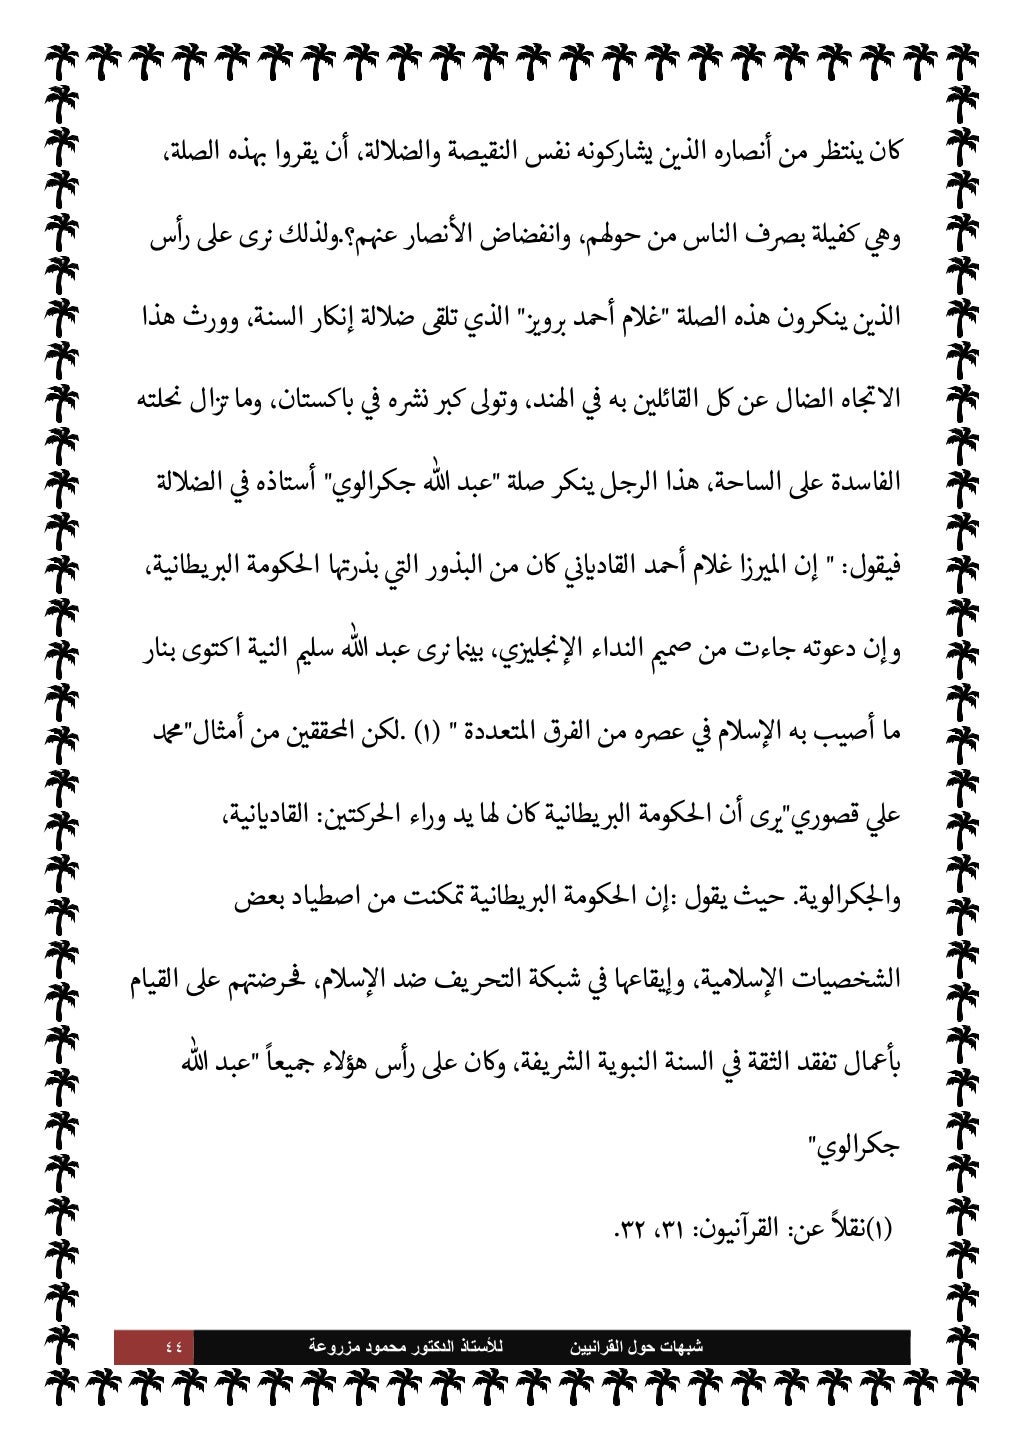 كان ينتظر من أنصاره الذين يشاركونه نفس النقيصة والضلالة، أن يقروا بهذه الصلة،
وهي كفيلة بصرف الناس من حولهم، وانفضاض الأنصار عنهم؟.ولذلك نرى على رأس
الذين ينكرون هذه الصلة "غلام أحمد برويز" الذي تلقى ضلالة إنكار السنة، وورث هذا
الاتجاه الضال عن كل القائلين به في الهند، وتولى كبر نشره في باكستان، وما تزال نحلته
الفاسدة على الساحة، هذا الرجل ينكر صلة "عبد الله جكرالوي" أستاذه في الضلالة
فيقول: " إن الميرزا غلام أحمد القادياني كان من البذور التي بذرتها الحكومة البريطانية،
وإن دعوته جاءت من صميم النداء الإنجليزي، بينما نرى عبد الله سليم النية اكتوى بنار
ما أصيب به الإسلام في عصره من الفرق المتعددة " (١) .لكن المحققين من أمثال"محمد
علي قصوري"يرى أن الحكومة البريطانية كان لها يد وراء الحركتين: القاديانية،
والجكرالوية. حيث يقول :إن الحكومة البريطانية تمكنت من اصطياد بعض
الشخصيات الإسلامية، وإيقاعها في شبكة التحريف ضد الإسلام، فحرضتهم على القيام
بأعمال تفقد الثقة في السنة النبوية الشريفة، وكان على رأس هؤلاء جميعاً "عبد الله
جكرالوي"
(١)نقلاً عن: القرآنيون: ٣١، ٣٢.
شبهات حول القرانيين للأستاذ الدكتور محمود مزروعة ٤٤